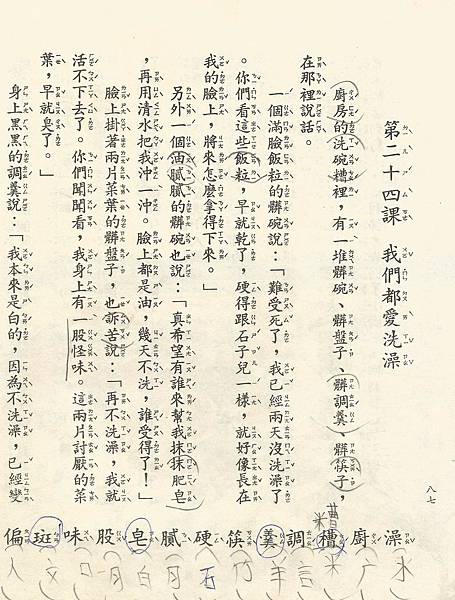 第二十四課　我們都愛洗澡
廚房的洗碗槽裡，有一堆髒碗、髒盤子、髒調羹、髒筷子，
在那裡說話。
一個滿臉飯粒的髒碗說：「難受死了，我已經兩天沒洗澡了
。你們看這些飯粒，早就乾了，硬得跟石子兒一樣，就好像長在
我的臉上，將來怎麼拿得下來。」
另外一個油膩膩的髒碗也說：「真希望有誰來幫我抹抹肥皂
，再用清水把我沖一沖。臉上都是油，幾天不洗，誰受得了！」
臉上掛著兩片菜葉的髒盤子，也訴苦說：「再不洗澡，我就
活不下去了。你們聞聞看，我身上有一股怪味。這兩片討厭的菜
葉，早就臭了。」
身上黑黑的調羹說：「我本來是白的，因為不洗澡，已經變
八七
澡（水
廚（广
槽（米
糟
調（言
羹（羊
筷（竹
硬（石
膩（月
皂（白
股（月
味（口
斑（文
偏（人